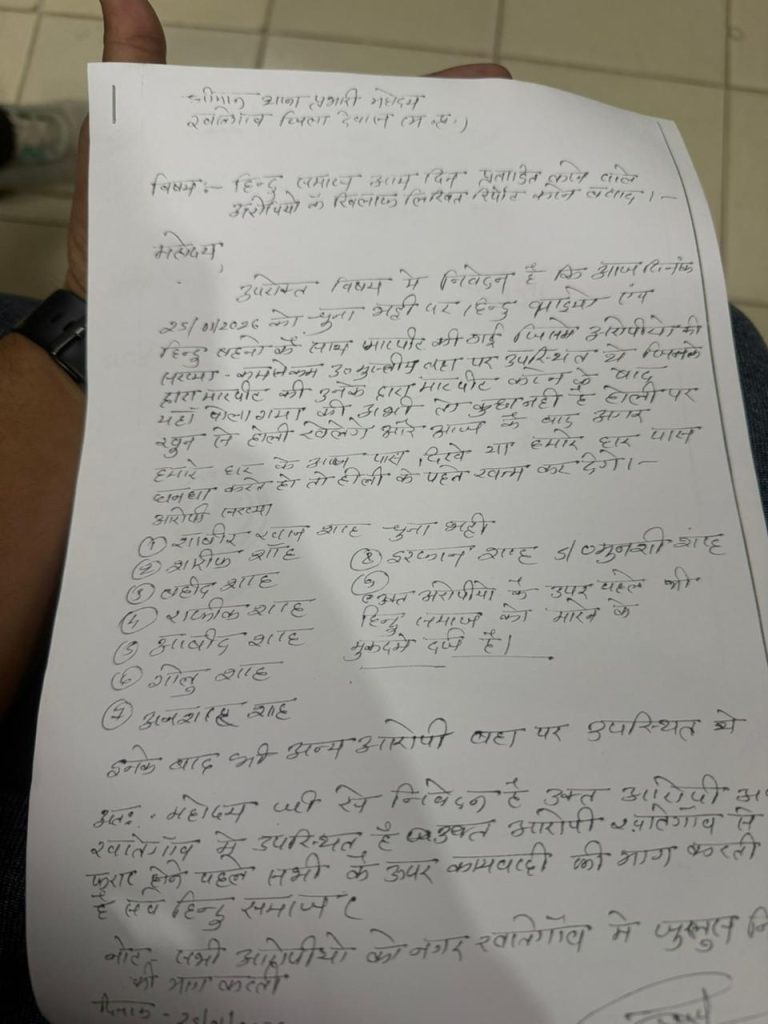 श्रीमान थाना प्रभारी महोदय
खातेगाँव जिला देवास (म.प्र.)
विषय:- हिन्दु समाज आय दिन प्रताडित करने वाले
आरोपियो के खिलाफ लिखित रिर्पोट करने बबाद।-
महोदय,
उपरोक्त विषय मे निवेदन है कि आज दिनांक
25/01/2026 को चुना भट्टी पर हिन्दु भाईयो एंव
हिन्दु बहनो के साथ मारपीट की गई जिसमे आरोपीयो की
सख्या - कमसेकम 30 मुस्लीम वहा पर उपस्थित थे जिनके
द्वारा मारपीट की उनके द्वारा मारपीट करने के बाद
यहाँ बोला गया की अभी तो कुछ नही है होली पर
खुन से होली खेलेगे और आज के बाद अगर
हमारे घर के आस पास दिखे या हमारे घर पास
धनधा करते हो तो होली के पहले खत्म कर देगे।-
आरोपी सख्या
① शाबीर खान शाह चुना भट्टी
② शरीफ शाह
③ वहीद शाह
④ राफीक शाह
⑤ आबीद शाह
⑥ गोलु शाह
⑦ शाह
⑧ इरफान शाह S/O मुनशी शाह
⑨
उक्त आरोपीयो के उपर पहले भी
हिन्दु समाज को मारने के
मुकदमे दर्ज है।
इनके बाद भी अन्य आरोपी वहा पर उपस्थित थे
अतः - महोदय जी से निवेदन है उक्त आरोपी
खातेगाँव मे उपस्थित है उक्त आरोपी खातेगाँव से
फरार होने पहले सभी के ऊपर कायवाही की माग करती
है सर्व हिन्दु समाज
नोट सभी आरोपीयो को नगर खातेगाँव मे जुलुस
की माग करती
दिनाक -